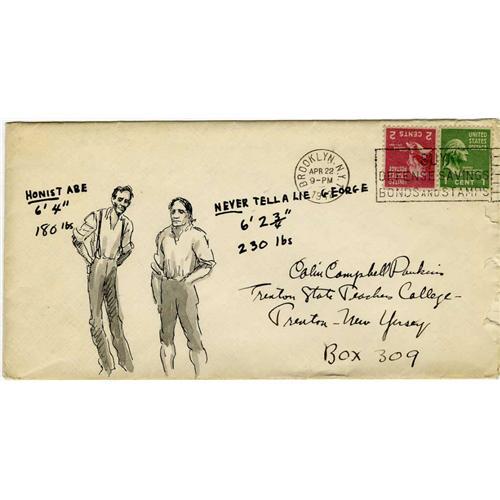 HONIST ABE
6' 4"
180 lbs
NEVER TELL A LIE GEORGE
6' 2 3/4"
230 lbs
BROOKLYN, N.Y.
APR 22
9-PM
2 CENTS 2
UNITED
STATES
CENT
BUY
DEFENSE SAVINGS
BONDS AND STAMPS
Colin Campbell
Trenton State Teachers College-
Trenton-New Jersey
BOX 309